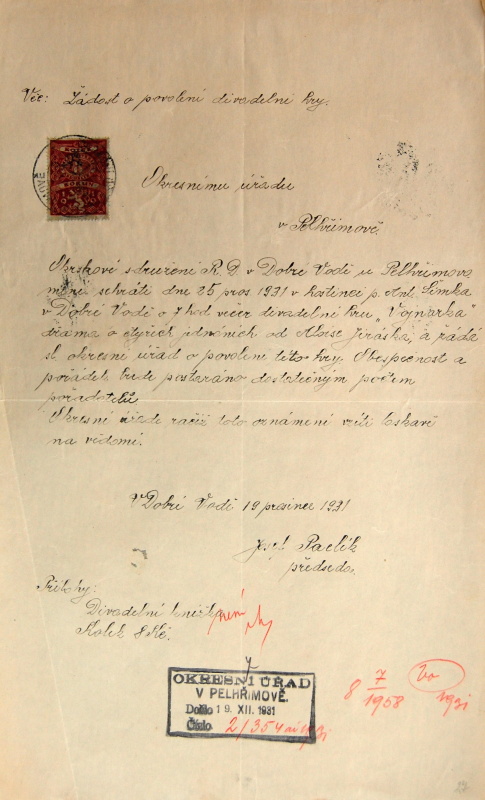 Věc: Žádost o povolení divadelní hry.
KOLEK
5
Okresnímu úřadu
v Pelhřimově.
Okrskové sdružení R. D v Dobré Vodě u Pelhřimova
míní sehráti dne 25 pros 1931 v hostinci p. Ant. Šimka
v Dobré Vodě o 7 hod večer divadelní hru, Vojnarka
drama o čtyřech jednáních od Aloise Jiráska, a žádá
sl. okresní úřad o povolení této hry. O bezpečnost a
pořádek bude postaráno dostatečným počtem
pořadatelů
Okresní úřade račiž toto oznámení vzíti laskavě
na vědomí.
V Dobré Vodě 19 prosince 1931
Josef Pavlík
předseda.
Přílohy:
Divadelní knížka není
Kolek 8 Kč.
OKRESNÍ ÚŘAD
V PELHŘIMOVĚ.
Došlo 19. XII. 1931
Číslo 2/354
8 7/1958
1931